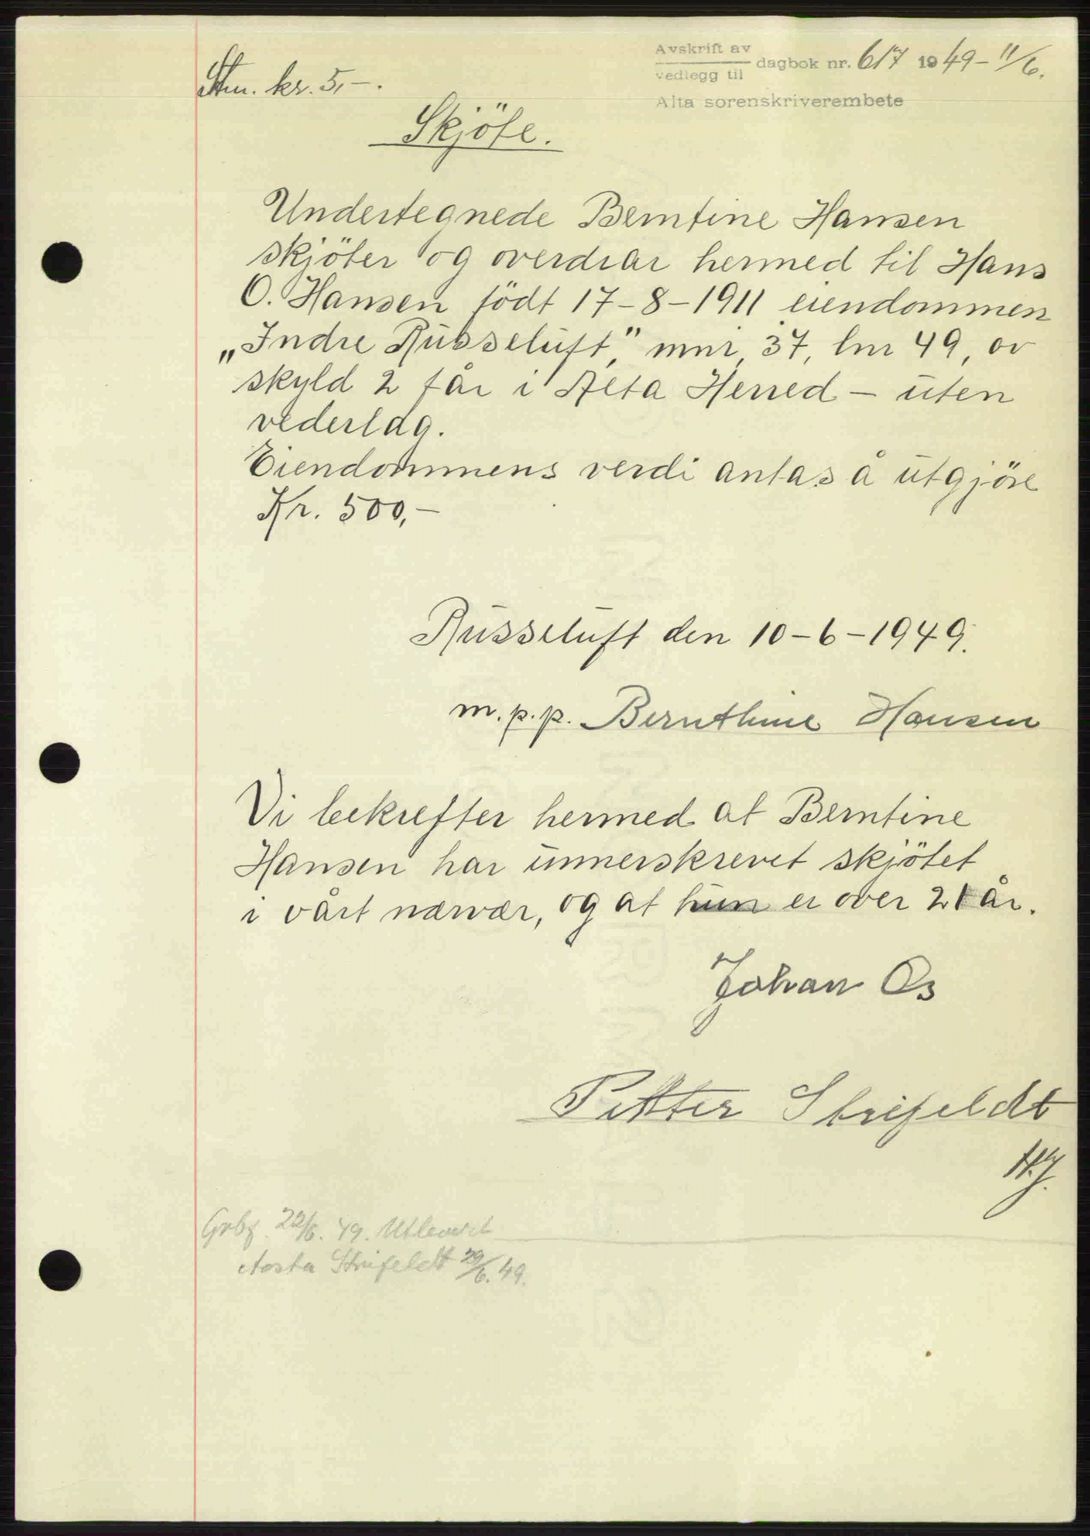 Avskrift av
vedlegg til dagbok nr. 617 1949 - 11/6.
Alta sorenskriverembete
Stm. kr. 5,-.
Skjöte.
Undertegnede Berntine Hansen
skjöter og overdrar hermed til Hans
O. Hansen födt 17-8-1911 eiendommen
„Indre Russeluft," mnr, 37, lnr 49, av
skyld 2 før i Alta Herred - uten
vederlag.
Eiendommens verdi antas å utgjöre
Kr. 500,-
Russeluft den 10-6-1949.
m.p.p. Bernthine Hansen
Vi bekrefter hermed at Berntine
Hansen har unnerskrevet skjötet
i vårt nærvær, og at hun er over 21 år.
Johan Os
Petter Strifeldt
H.J.
Grbf. 22/6. 49. Utlevert
Aosta Strifeldt 29/6. 49.